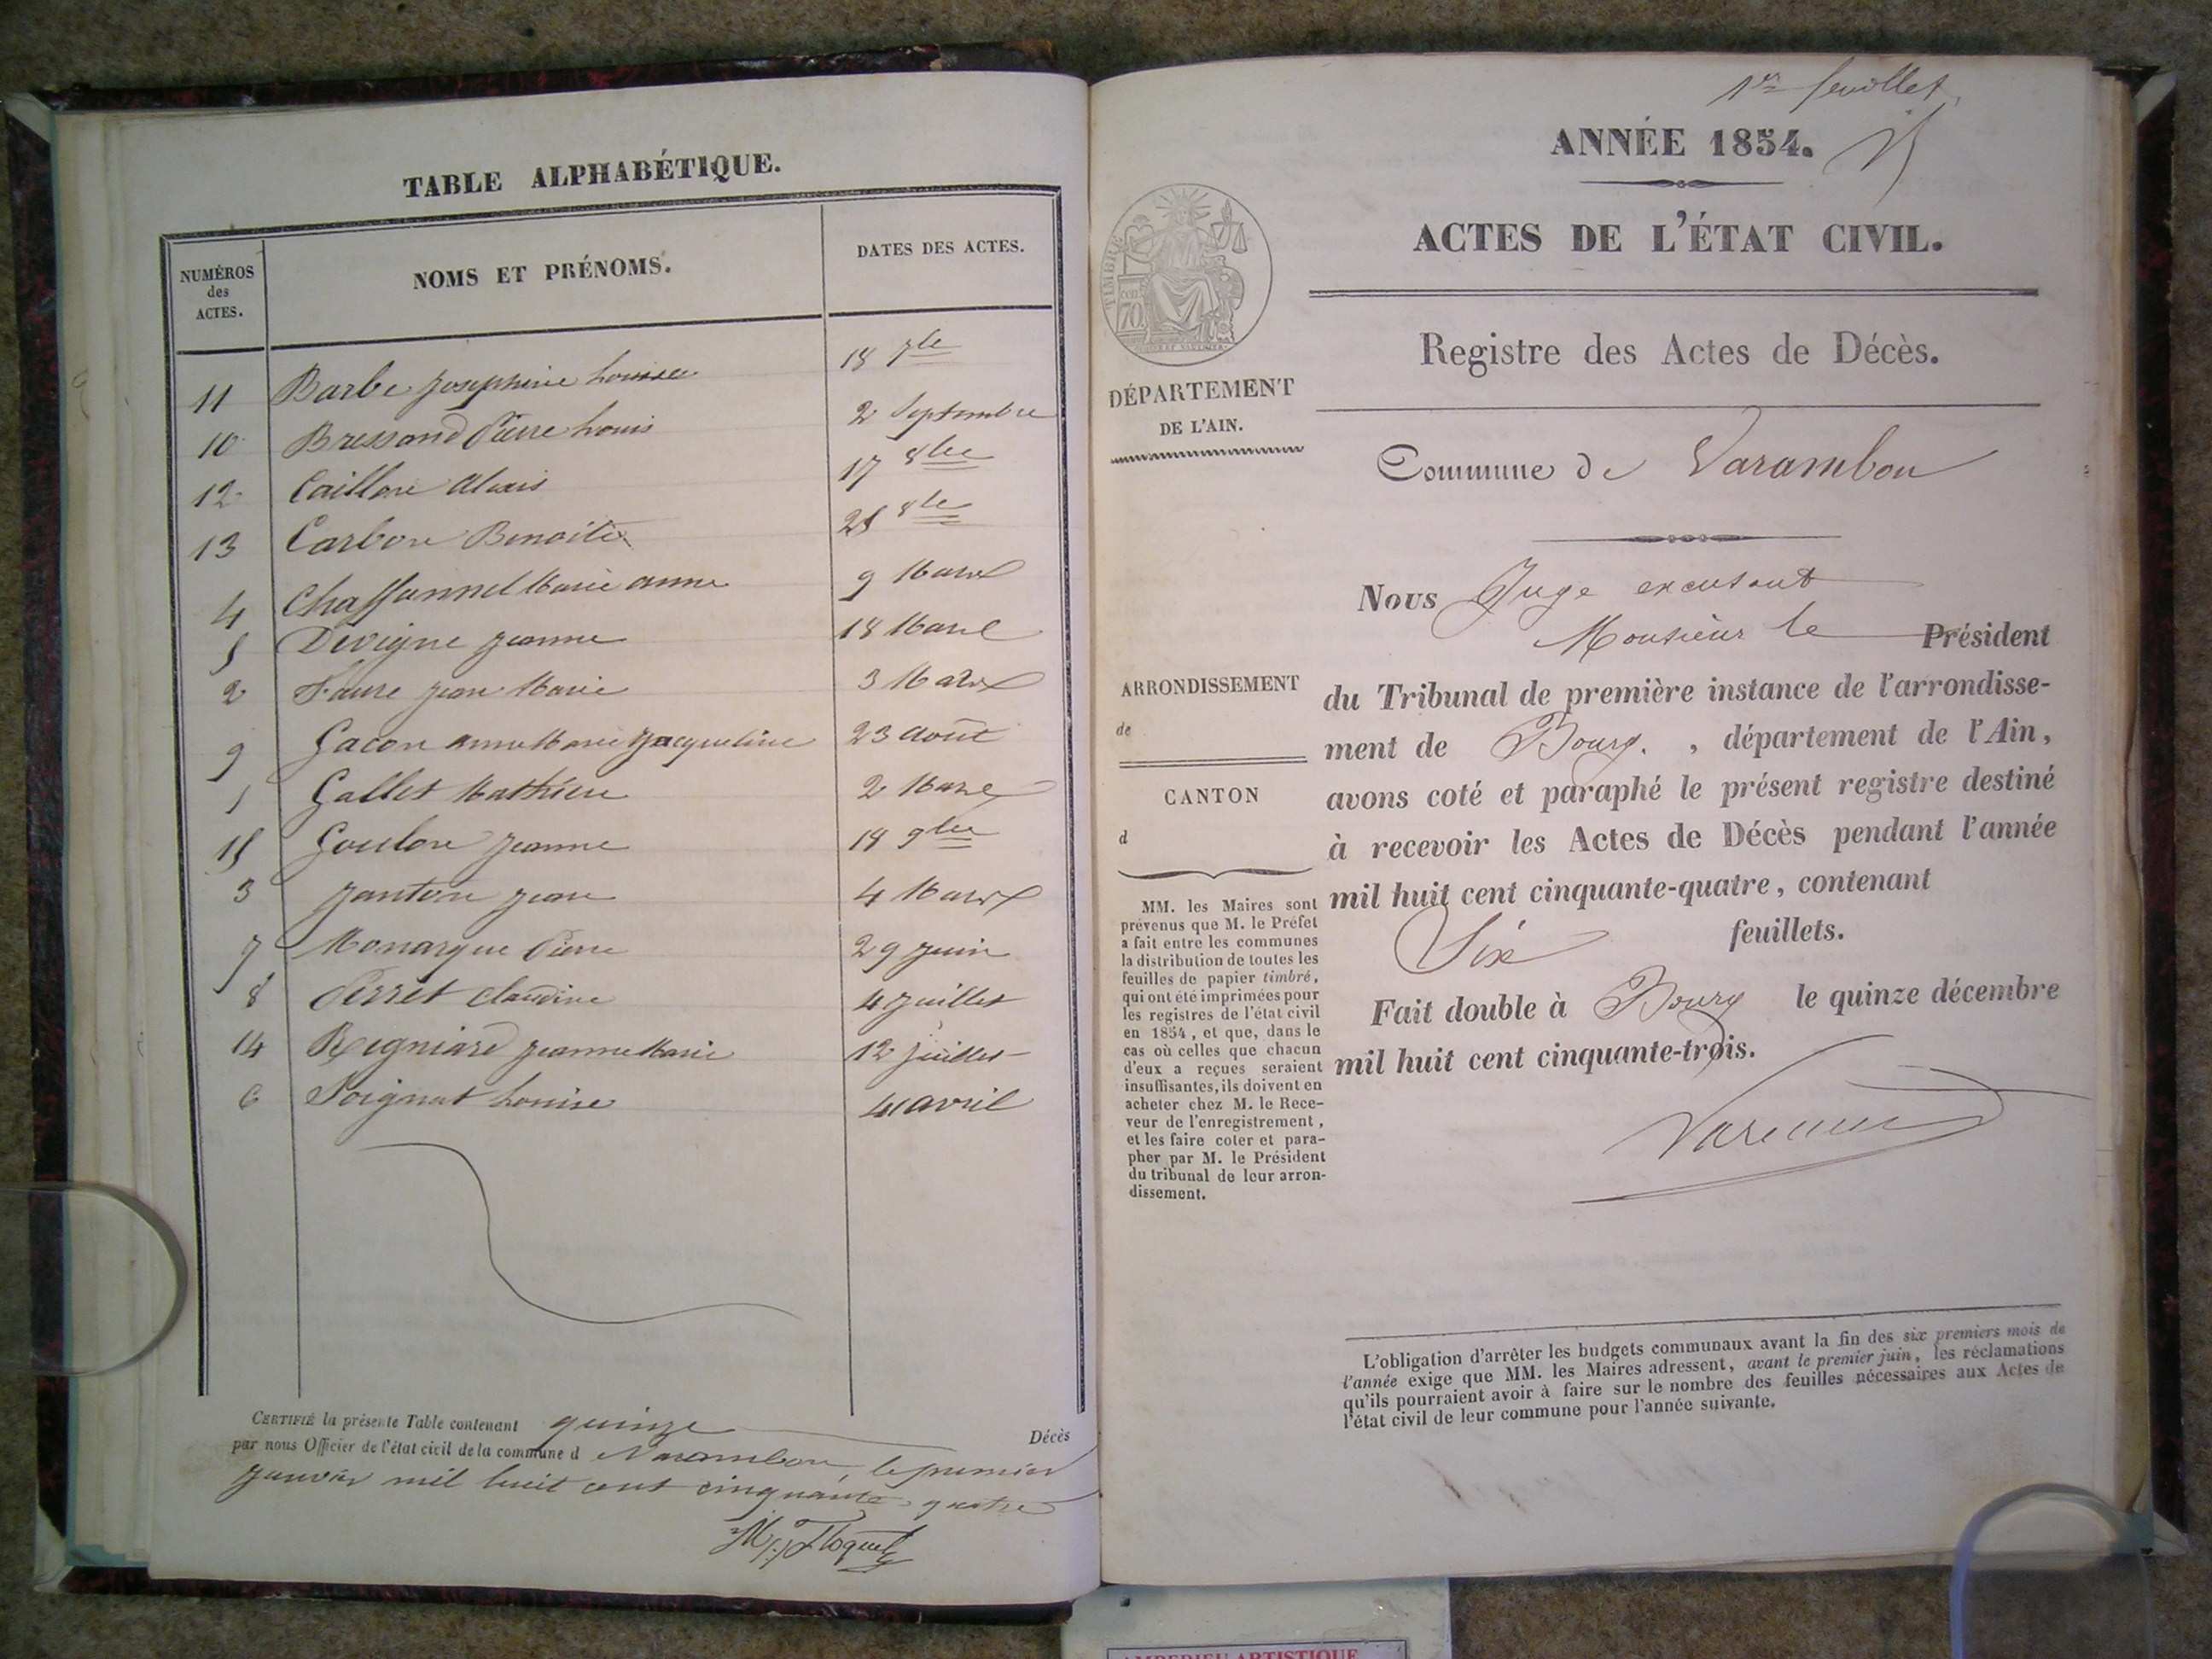 TABLE ALPHABÉTIQUE.
NUMÉROS des ACTES.
NOMS ET PRÉNOMS.
DATES DES ACTES.
11 Barbe Josephine Louise 18 7bre
10 Bressand Pierre Louis 2 Septembre
12 Caillon Alexis 17 8bre
13 Carbon Benoite 25 8bre
4 Chaffannel Marie anne 9 Mars
5 Devigne Jeanne 18 Mars
2 Faure Jean Marie 3 Mars
9 Gacon Anne Marie Jacqueline 23 Août
1 Gallet Mathieu 2 Mars
15 Goulon Jeanne 18 9bre
3 Janton Jean 4 Mars
7 Monarque Pierre 29 Juin
8 Perret Claudine 4 Juillet
14 Regniard Jeanne Marie 12 Juillet
6 Soignat Louise 4 avril
CERTIFIÉ la présente Table contenant quinze Décès
par nous Officier de l'état civil de la commune d Varambon, le premier
Janvier mil huit cent cinquante quatre
1er feuillet
ANNÉE 1854.
ACTES DE L'ÉTAT CIVIL.
TIMBRE
70
Registre des Actes de Décès.
DÉPARTEMENT
DE L'AIN.
Commune de Varambon
Nous Juge excusant
Monsieur le Président
du Tribunal de première instance de l'arrondisse-
ment de Bourg. , département de l'Ain,
avons coté et paraphé le présent registre destiné
à recevoir les Actes de Décès pendant l'année
mil huit cent cinquante-quatre, contenant
Six feuillets.
Fait double à Bourg le quinze décembre
mil huit cent cinquante-trois.
ARRONDISSEMENT
de
CANTON
d
MM. les Maires sont
prévenus que M. le Préfet
a fait entre les communes
la distribution de toutes les
feuilles de papier timbré,
qui ont été imprimées pour
les registres de l'état civil
en 1854, et que, dans le
cas où celles que chacun
d'eux a reçues seraient
insuffisantes, ils doivent en
acheter chez M. le Rece-
veur de l'enregistrement,
et les faire coter et para-
pher par M. le Président
du tribunal de leur arron-
dissement.
L'obligation d'arrêter les budgets communaux avant la fin des six premiers mois de
l'année exige que MM. les Maires adressent, avant le premier juin, les réclamations
qu'ils pourraient avoir à faire sur le nombre des feuilles nécessaires aux Actes de
l'état civil de leur commune pour l'année suivante.
AMBERIEU ARTISTIQUE